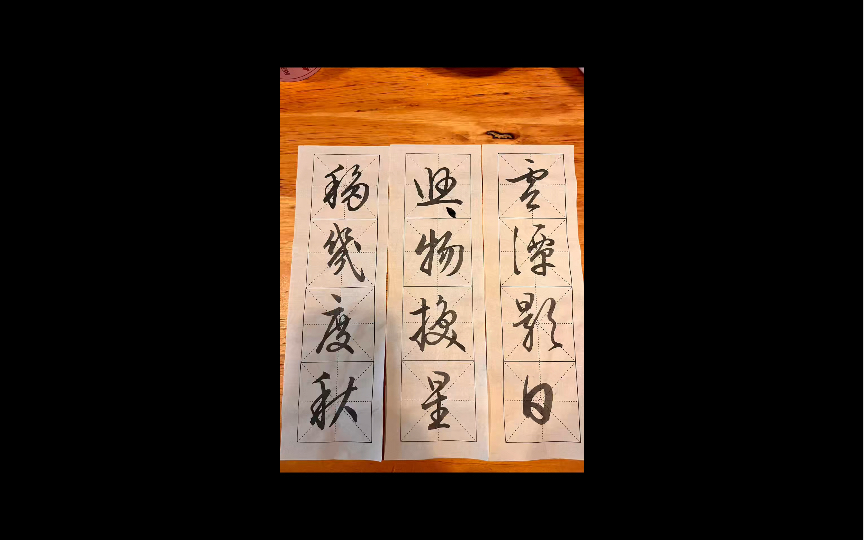 雲潭影日
悠々物換星
移幾度秋